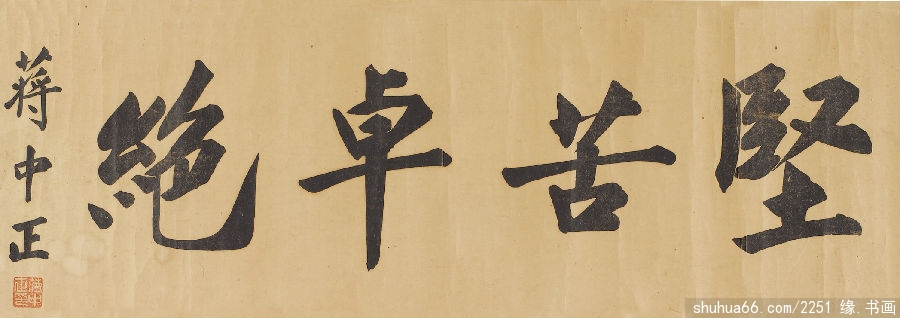 堅苦卓絕
蔣中正
shuhua66.com/2251 缘.书画